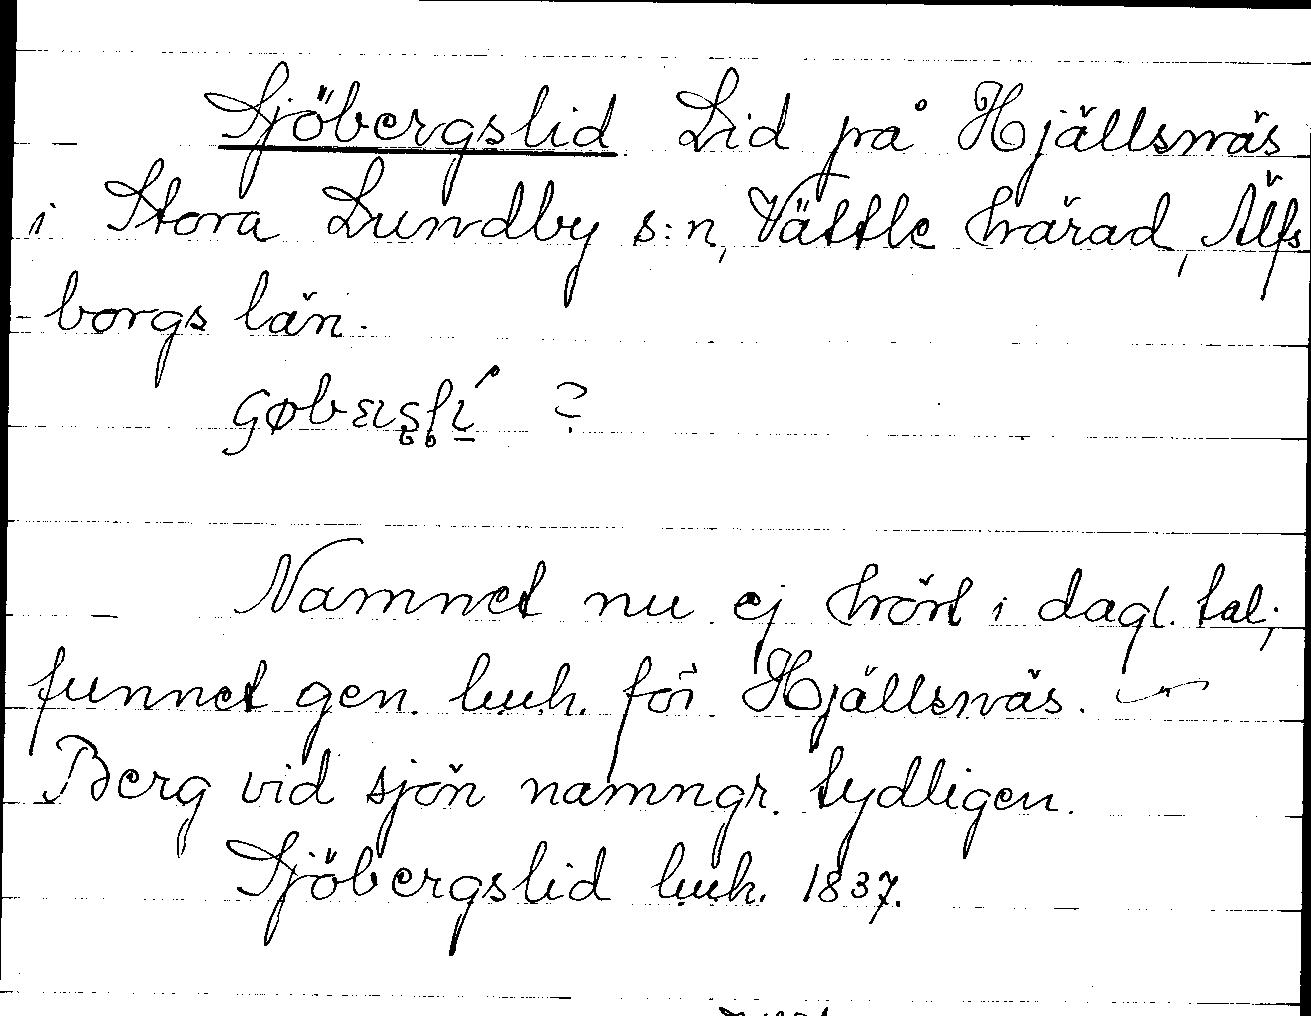 Sjöbergslid Lid på Hjällsnäs
i Stora Lundby s:n, Vättle härad, Älfs
borgs län.
?
Namnet nu ej hört i dagl. tal;
funnet gen. luuh. för Hjällsnäs. —
Berg vid sjön namngr. tydligen.
Sjöbergslid luuh. 1837.